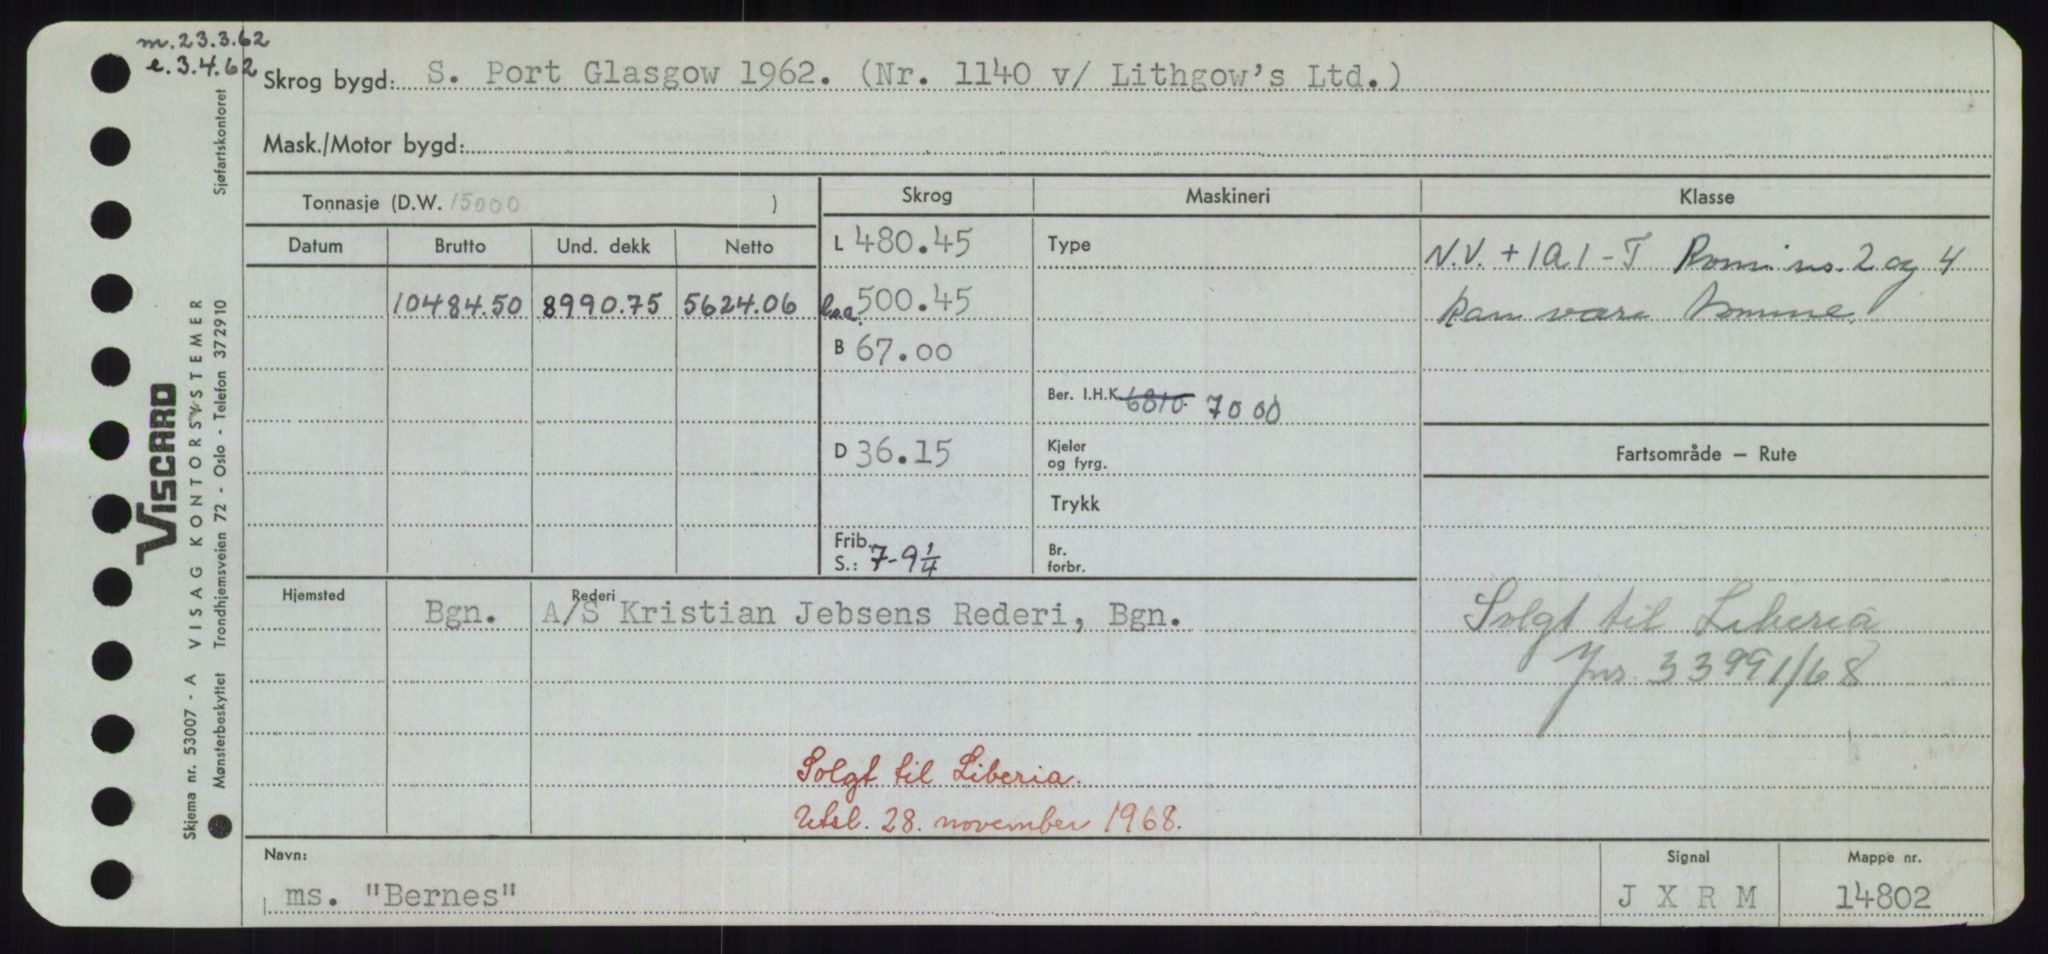 m. 23.3.62
e. 3.4.62
Skrog bygd: S. Port Glasgow 1962. (Nr. 1140 v/ Lithgow's Ltd.)
Mask./Motor bygd:
Tonnasje (D.W. 15000 )
Skrog
Maskineri
Klasse
Datum
Brutto
Und. dekk
Netto
L 480.45
Type
N.V. + 1A1 - T Rom no. 2 og 4
10484.50 8990.75 5624.06
l.o.a. 500.45
kan være tomme.
B 67.00
Ber. I.H.K. 6810. 7000
D 36.15
Kjeler
og fyrg.
Fartsområde — Rute
Trykk
Frib.
S.: 7-9 1/4
Br.
forbr.
Hjemsted
Bgn.
Rederi
A/S Kristian Jebsens Rederi, Bgn.
Solgt til Liberia
Jnr. 33991/68
Solgt til Liberia.
Utsl. 28. november 1968.
Navn:
ms. "Bernes"
Signal
J X R M
Mappe nr.
14802
VISCARD
Skjema nr. 53007 - A VISAG KONTORSYSTEMER
Mønsterbeskyttet Trondhjemsveien 72 - Oslo - Telefon 372910 Sjøfartskontoret